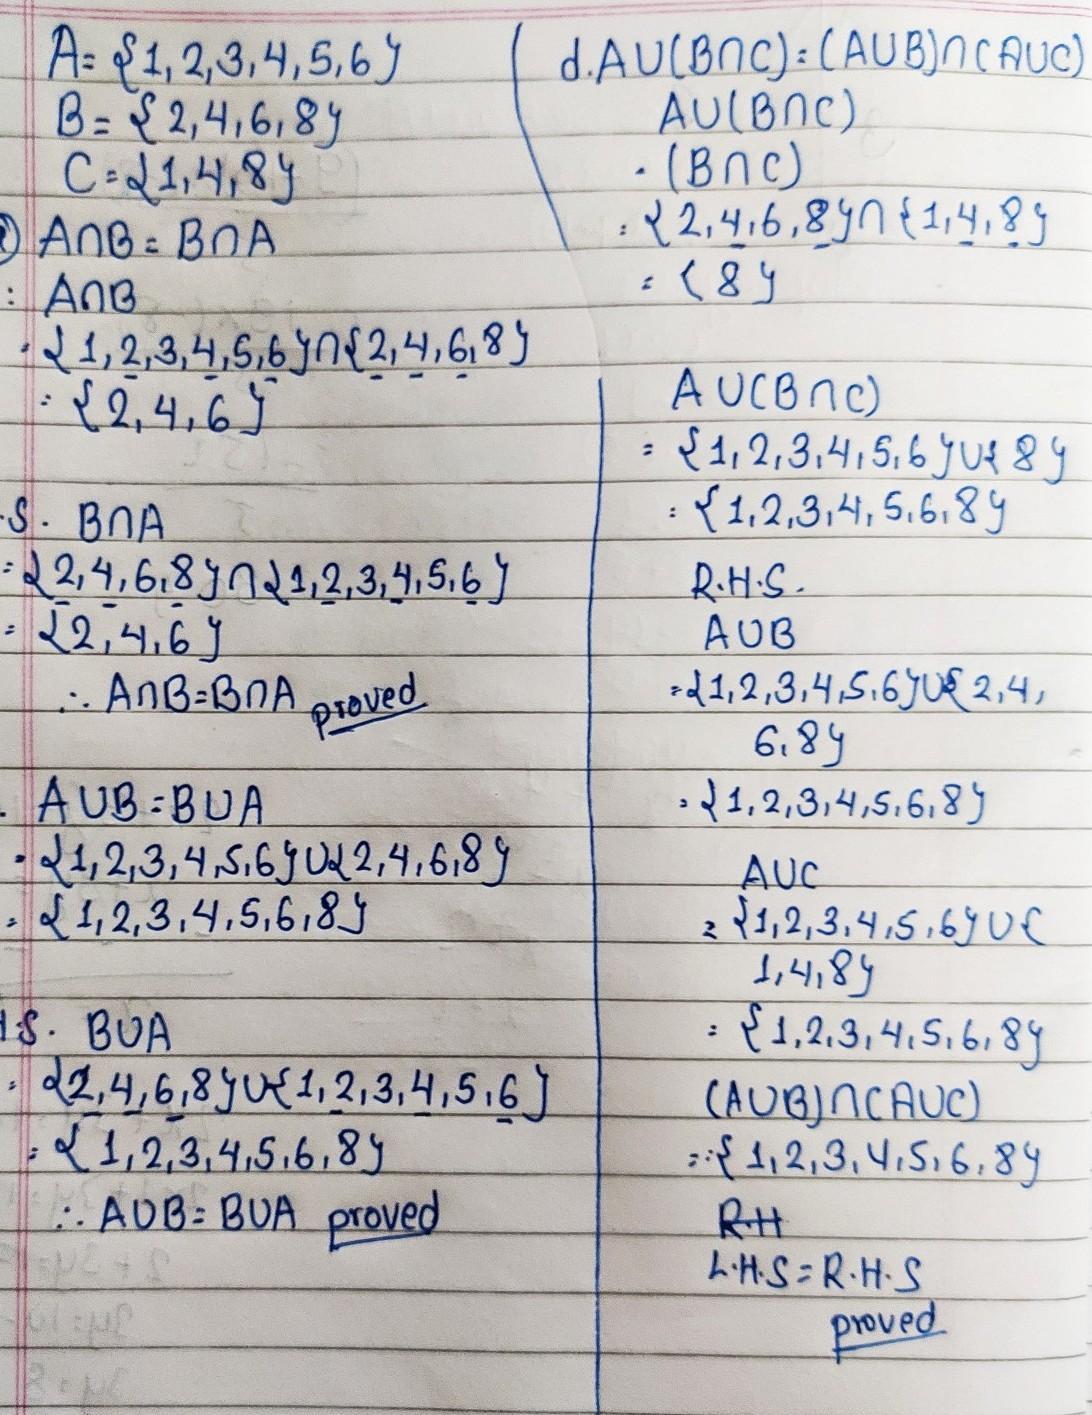 A = {1,2,3,4,5,6}
B = {2,4,6,8}
C = {1,4,8}
A∩B = B∩A
: A∩B
{1,2,3,4,5,6}∩{2,4,6,8}
: {2,4,6}
S. B∩A
= {2,4,6,8}∩{1,2,3,4,5,6}
= {2,4,6}
∴ A∩B=B∩A proved
A∪B=B∪A
= {1,2,3,4,5,6}∪{2,4,6,8}
= {1,2,3,4,5,6,8}
.S. B∪A
= {2,4,6,8}∪{1,2,3,4,5,6}
= {1,2,3,4,5,6,8}
∴ A∪B = B∪A proved
d. A∪(B∩C) = (A∪B)∩(A∪C)
A∪(B∩C)
. (B∩C)
: {2,4,6,8}∩{1,4,8}
= {8}
A∪(B∩C)
= {1,2,3,4,5,6}∪{8}
= {1,2,3,4,5,6,8}
R.H.S.
A∪B
= {1,2,3,4,5,6}∪{2,4,
6,8}
= {1,2,3,4,5,6,8}
A∪C
= {1,2,3,4,5,6}∪{
1,4,8}
= {1,2,3,4,5,6,8}
(A∪B)∩(A∪C)
= {1,2,3,4,5,6,8}
RH
L.H.S = R.H.S
proved